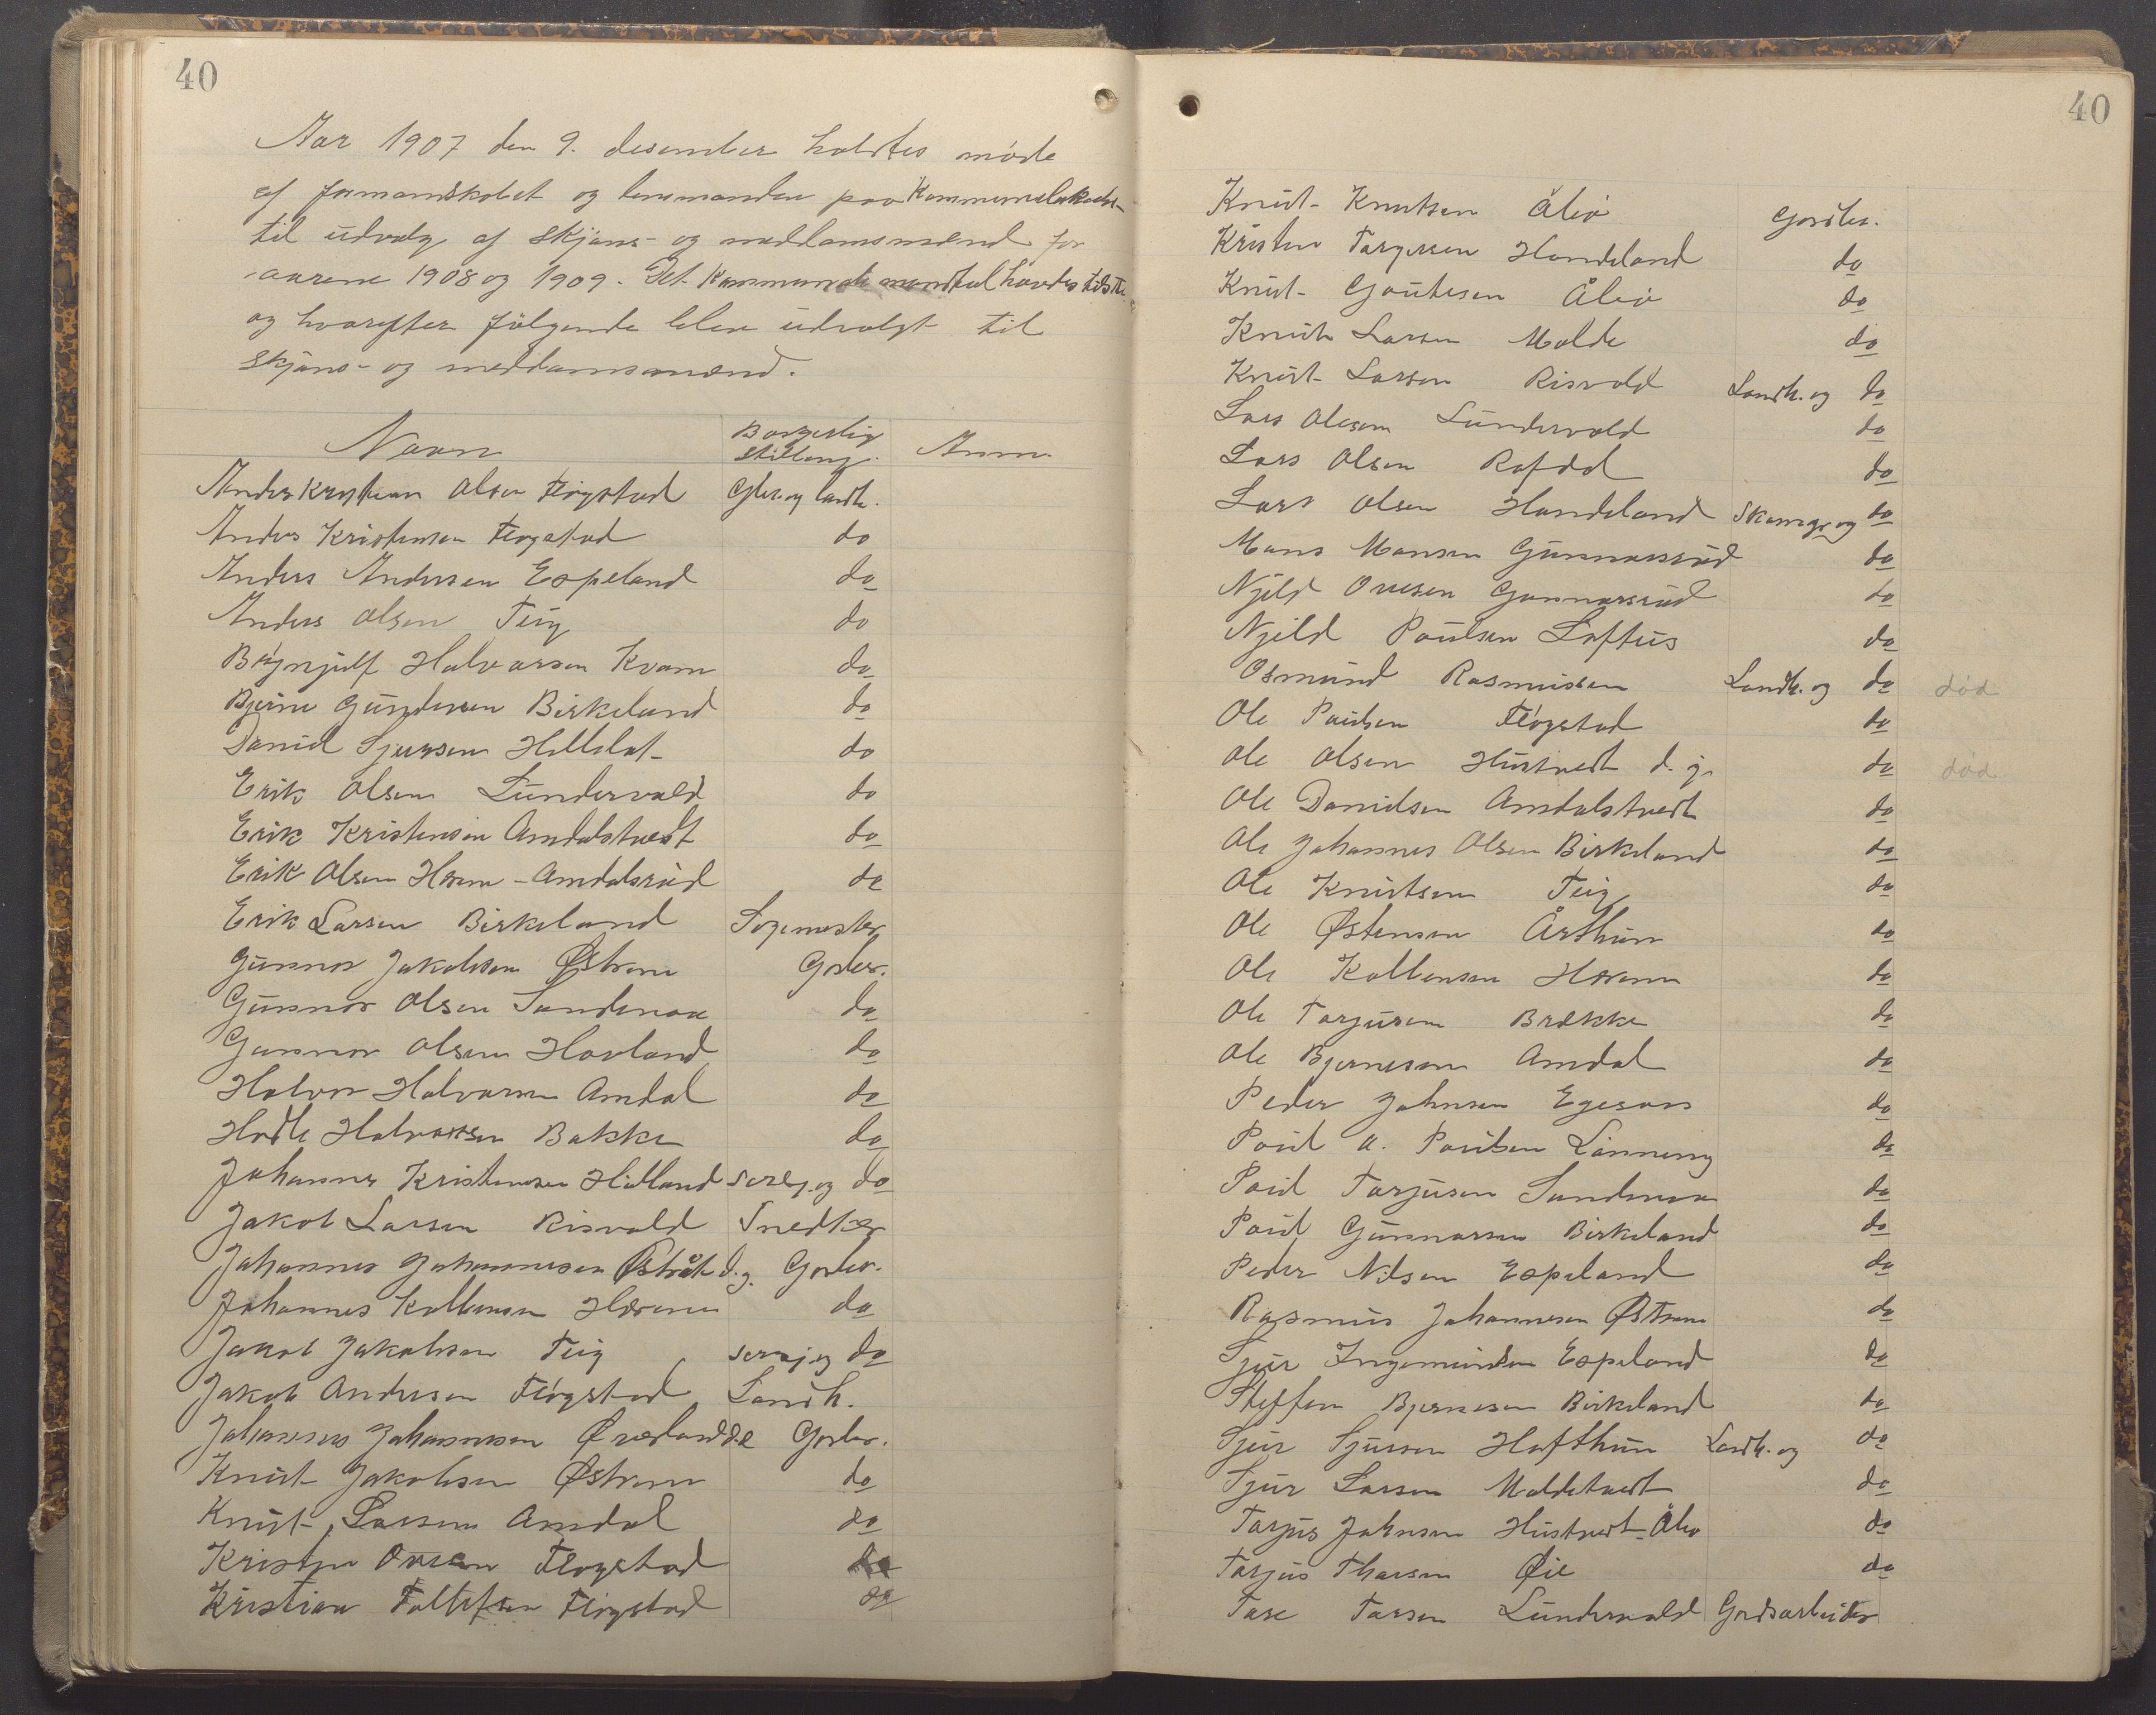 40
Aar 1907 den 9. desember holdtes møde
af formandskabet og lensmanden paa Kommunelokalet
til udvalg af skjøns- og meddomsmænd for
aarene 1908 og 1909. Det Kommunale manntal havdes tilstede
og hvorefter følgende blev udvalgt til
skjøns- og meddomsmænd.
Navn Borgerlig stilling. Anm.
Anders Kristian Olsen Fløgstad Gbr. og landh.
Anders Kristensen Fløgstad do
Anders Andersen Espeland do
Anders Olsen Teig do
Brynjulf Halvorsen Kvam do
Bjerne Gundersen Birkeland do
Daniel Sjursen do
Erik Olsen Lundervold do
Erik Kristensen Amdalstvedt do
Erik Olsen Hærem - Amdalsrud do
Erik Larsen Birkeland Sogemester
Gunnar Jakobsen Østrem Gbr.
Gunnar Olsen Sandenaa do
Gunnar Olsen Hovland do
Halvor Halvorsen Amdal do
Hodle Halvorsen Bakke do
Johannes Kristensen og do
Jakob Larsen Risvold Snedker
Johannes Johannesen Østråt d.y. Gbr.
Johannes Kolbensen Hærem do
Jakob Jakobsen Teig og do
Jakob Andersen Fløgstad Landh.
Johannes Johannesen Øvreland d.e. Gbr.
Knut Jakobsen Østrem do
Knut Larsen Amdal do
Kristen Ovesen Fløgstad do
Kristian Tollefsen Fløgstad do
40
Knut Knutsen Ålvø Gbr.
Kristen Torgersen Handeland do
Knut Gautesen Ålvø do
Knut Larsen Molde do
Knut Larsen Risvold Landh. og do
Lars Olesen Lundervold do
Lars Olsen Rafdal do
Lars Olsen Handeland og do
Mons Monsen Gunnarsrud do
Njeld Ovesen Gunnarsrud do
Njeld Poulsen Loftus do
Osmund Rasmussen Landh. og do død
Ole Paulsen Fløgstad do
Ole Olsen Hustvedt d.y. do død
Ole Danielsen Amdalstvedt do
Ole Johannes Olsen Birkeland do
Ole Knutsen Teig do
Ole Østensen Årthun do
Ole Kolbensen Hærem do
Ole Torjusen Brekke do
Ole Bjernesen Amdal do
Peder Johnsen Egesaas do
Poul A. Poulsen Lunning do
Poul Torjusen Sandenaa do
Poul Gunnarsen Birkeland do
Peder Nilsen Espeland do
Rasmus Johannesen Østrem do
Sjur Ingemundsen Espeland do
Steffen Bjernesen Birkeland do
Sjur Sjursen Hafthun Landh. og do
Sjur Larsen Moldetvedt do
Torjus Johnsen Hustvedt-Ålvø do
Torjus Thorsen Øie do
Tore Torsen Lundervold Gardsarbeider